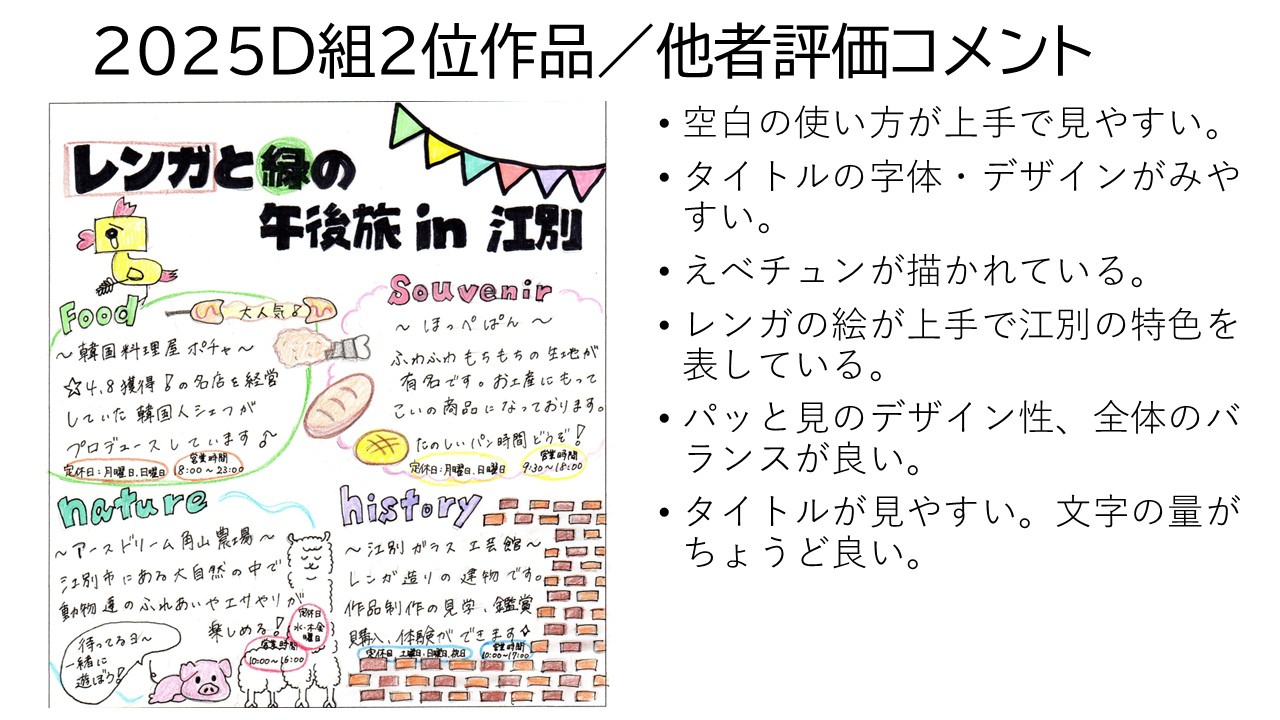 2025D組2位作品／他者評価コメント
レンガと緑の
午後旅 in 江別
Food
大人気!
～韓国料理屋 ポチャ～
☆4.8獲得!の名店を経営
していた 韓国人シェフが
プロデュースしています♪
定休日:月曜日,日曜日
営業時間
8:00～23:00
Souvenir
～ ほっぺぱん ～
ふわふわもちもちの生地が
有名です。お土産にもって
こいの商品になっております。
たのしいパン時間どうぞ!
定休日:月曜日.日曜日
営業時間
9:30～18:00
nature
～アースドリーム角山農場～
江別市にある大自然の中で
動物達のふれあいやエサやりが
楽しめる!
定休日
水・木・金
曜日
営業時間
10:00～16:00
待ってるヨ～
一緒に
遊ぼう!
history
～江別ガラス工芸館～
レンガ造りの建物です。
作品制作の見学、鑑賞
購入、体験ができます☆
定休日 土曜日,日曜日,祝日
営業時間
10:00～17:00
• 空白の使い方が上手で見やすい。
• タイトルの字体・デザインがみや
すい。
• えべチュンが描かれている。
• レンガの絵が上手で江別の特色を
表している。
• パッと見のデザイン性、全体のバ
ランスが良い。
• タイトルが見やすい。文字の量が
ちょうど良い。